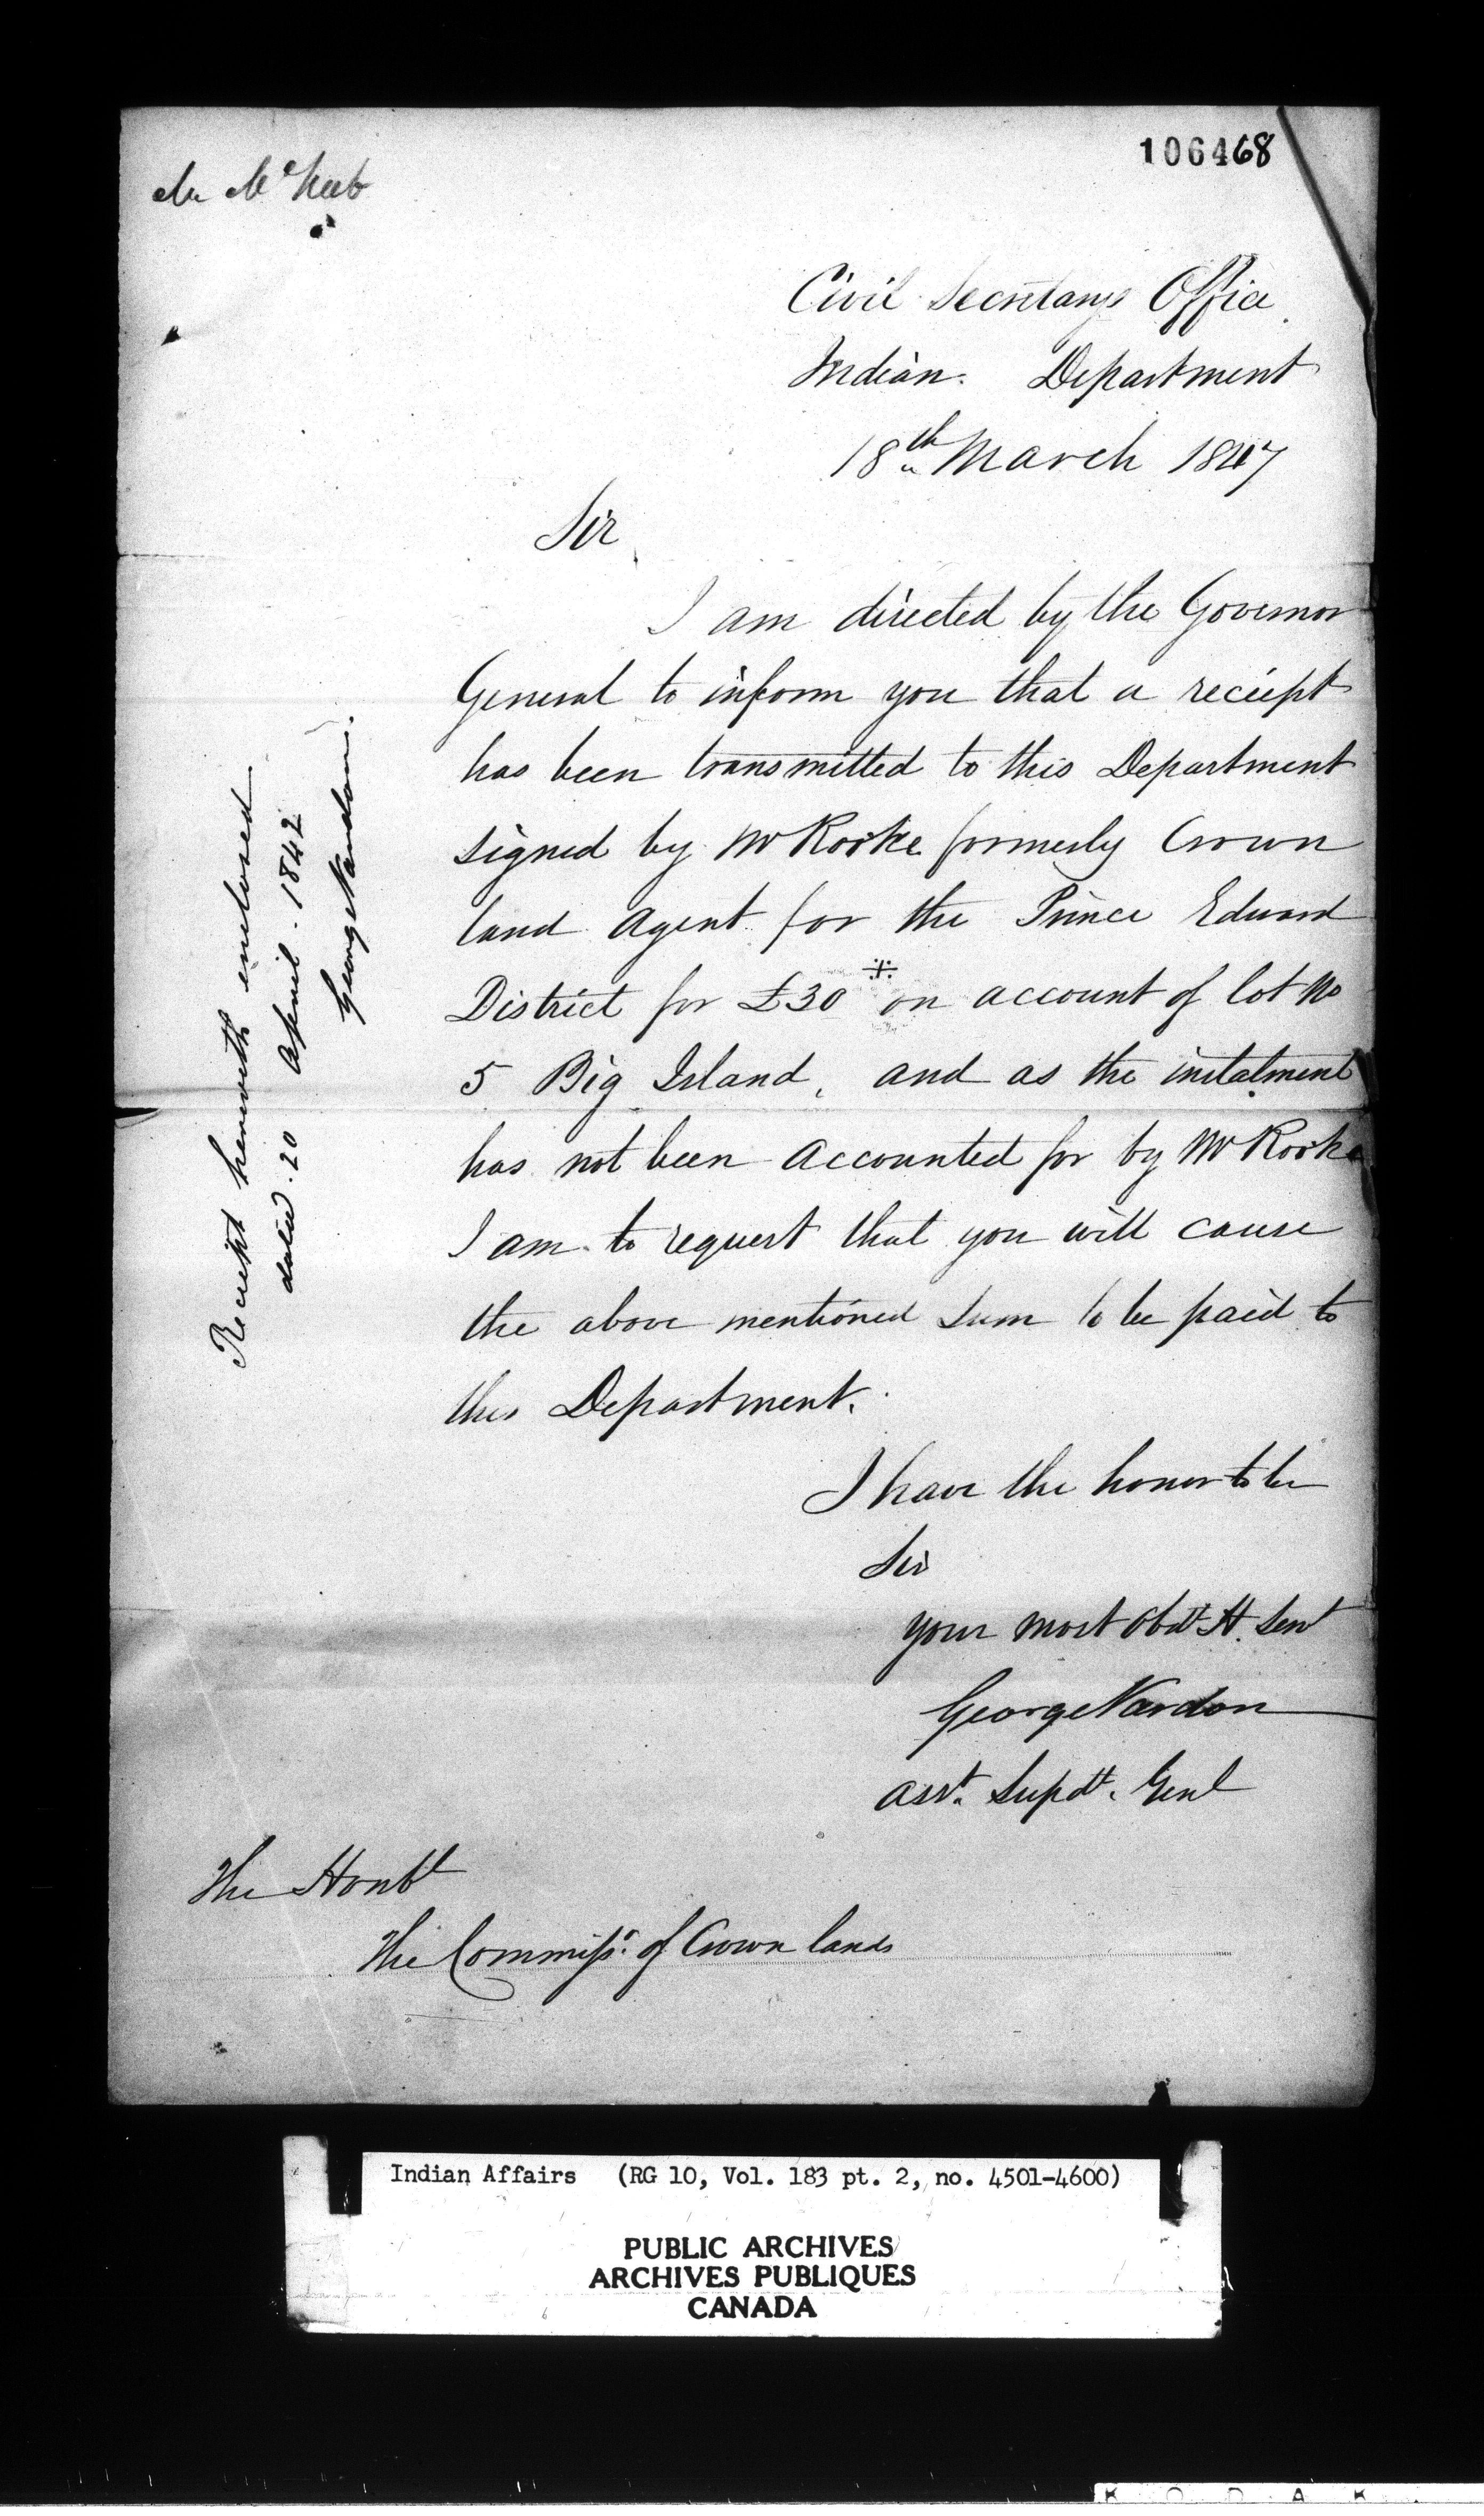 106468
Mr McNab
Civil Secretary's Office
Indian Department
18th March 1847
Sir
I am directed by the Governor
General to inform you that a reciept
has been transmitted to this Department
signed by Mr Rorke formerly Crown
land Agent for the Prince Edward
District for £30 on account of lot No
5 Big Island, and as the instalment
has not been accounted for by Mr Rorke
I am to request that you will cause
the above mentioned sum to be paid to
this Department.
I have the honor to be
Sir
your most obdt H. Servt
George Vardon
Asst. Supdt. Genl
The Honble
The Commissr. of Crown lands
Reciept herewith enclosed
dated. 20 April. 1842
George Vardon.
Indian Affairs (RG 10, Vol. 183 pt. 2, no. 4501-4600)
PUBLIC ARCHIVES
ARCHIVES PUBLIQUES
CANADA
K O D A K